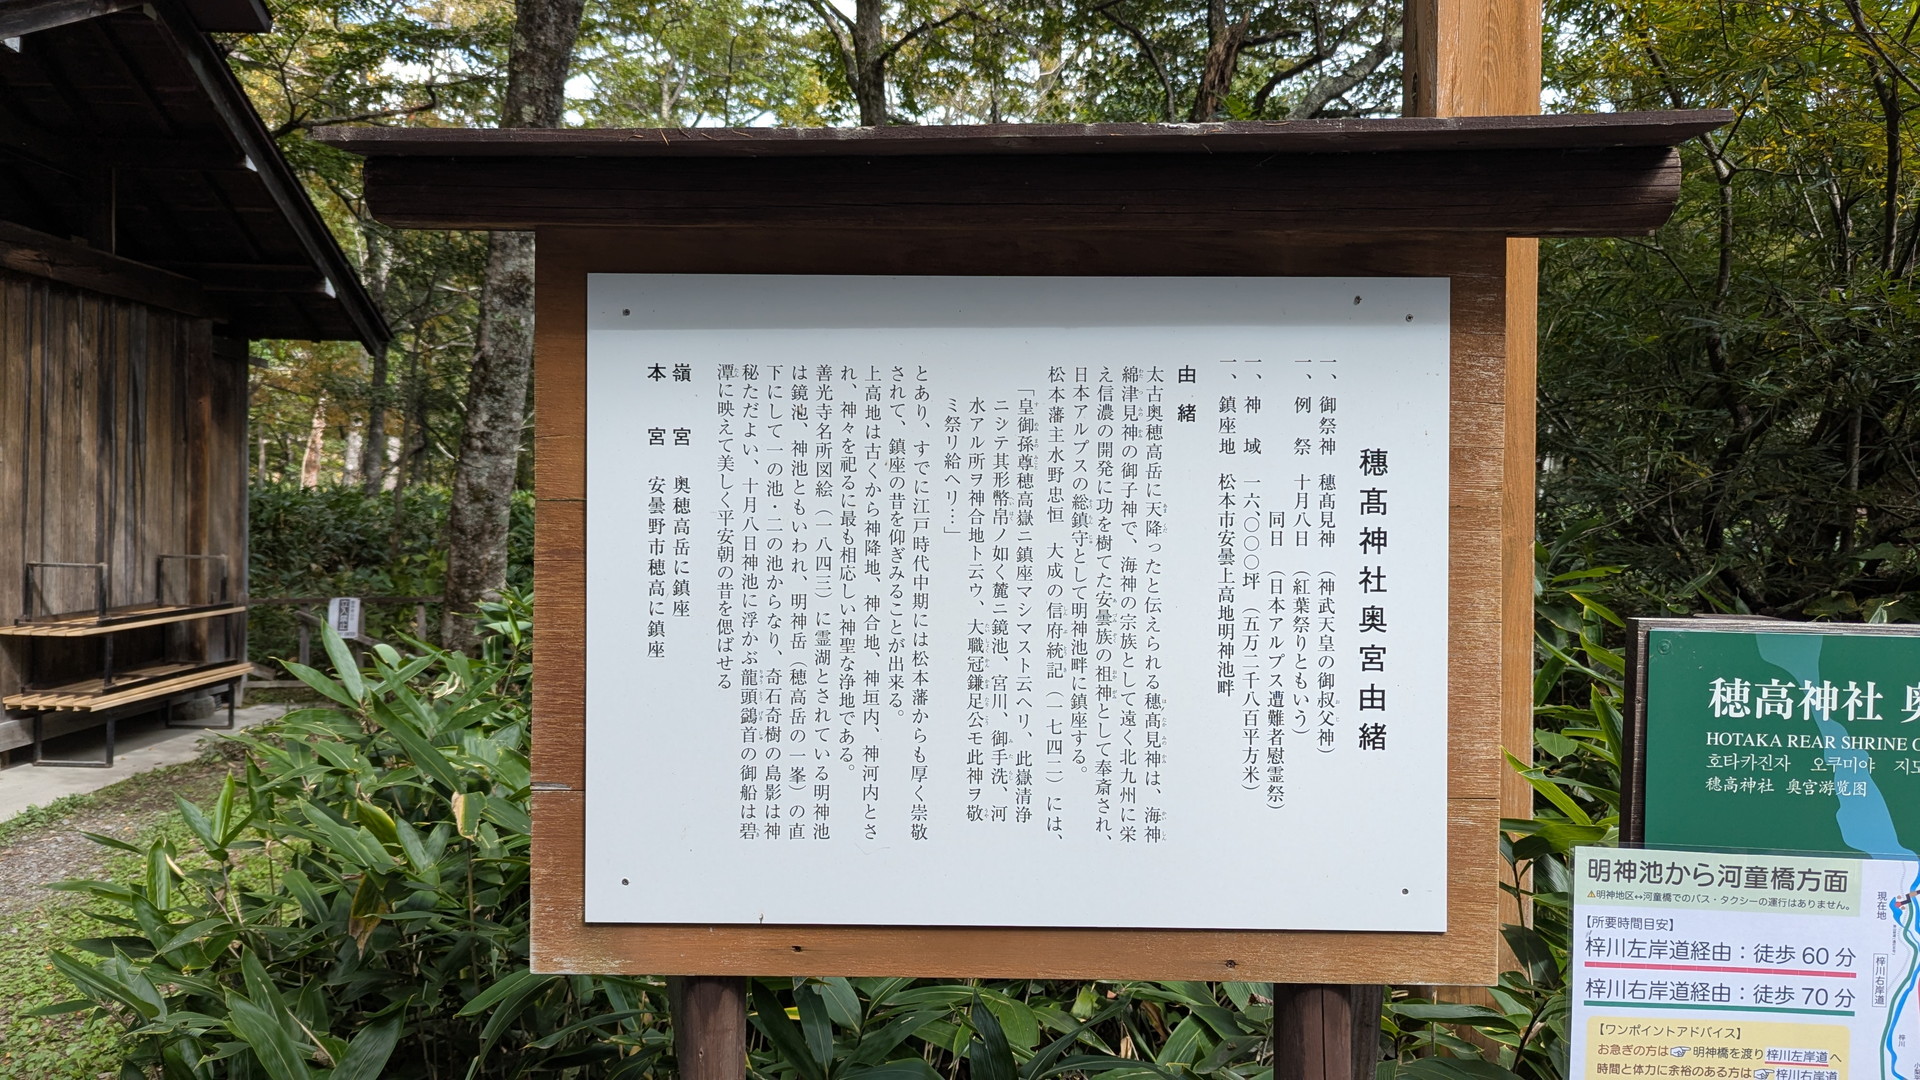 穂髙神社奥宮由緒
一、御祭神　穂髙見神　（神武天皇の御叔父神）
一、例　祭　十月八日　（紅葉祭りともいう）
同日　（日本アルプス遭難者慰霊祭）
一、神　域　一六〇〇〇坪　（五万二千八百平方米）
一、鎮座地　松本市安曇上高地明神池畔
由　緒
太古奥穂高岳に天降ったと伝えられる穂髙見神は、海神
綿津見神の御子神で、海神の宗族として遠く北九州に栄
え信濃の開発に功を樹てた安曇族の祖神として奉斎され、
日本アルプスの総鎮守として明神池畔に鎮座する。
松本藩主水野忠恒　大成の信府統記（一七四二）には、
「皇御孫尊穂高嶽ニ鎮座マシマスト云ヘリ、此嶽清浄
ニシテ其形幣帛ノ如く麓ニ鏡池、宮川、御手洗、河
水アル所ヲ神合地ト云ウ、大職冠鎌足公モ此神ヲ敬
ミ祭リ給ヘリ…」
とあり、すでに江戸時代中期には松本藩からも厚く崇敬
されて、鎮座の昔を仰ぎみることが出来る。
上高地は古くから神降地、神合地、神垣内、神河内とさ
れ、神々を祀るに最も相応しい神聖な浄地である。
善光寺名所図絵（一八四三）に霊湖とされている明神池
は鏡池、神池ともいわれ、明神岳（穂高岳の一峯）の直
下にして一の池・二の池からなり、奇石奇樹の島影は神
秘ただよい、十月八日神池に浮かぶ龍頭鷁首の御船は碧
潭に映えて美しく平安朝の昔を偲ばせる
嶺　宮　奥穂高岳に鎮座
本　宮　安曇野市穂高に鎮座
穂高神社 奥
HOTAKA REAR SHRINE
호타카진자　오쿠미야
穂高神社　奥宮游览图
明神池から河童橋方面
⚠明神地区↔河童橋でのバス・タクシーの運行はありません。
【所要時間目安】
梓川左岸道経由：徒歩 60 分
梓川右岸道経由：徒歩 70 分
【ワンポイントアドバイス】
お急ぎの方は☞明神橋を渡り梓川左岸道へ
時間と体力に余裕のある方は☞梓川右岸道
現在地
梓川右岸道
梓川
立入禁止